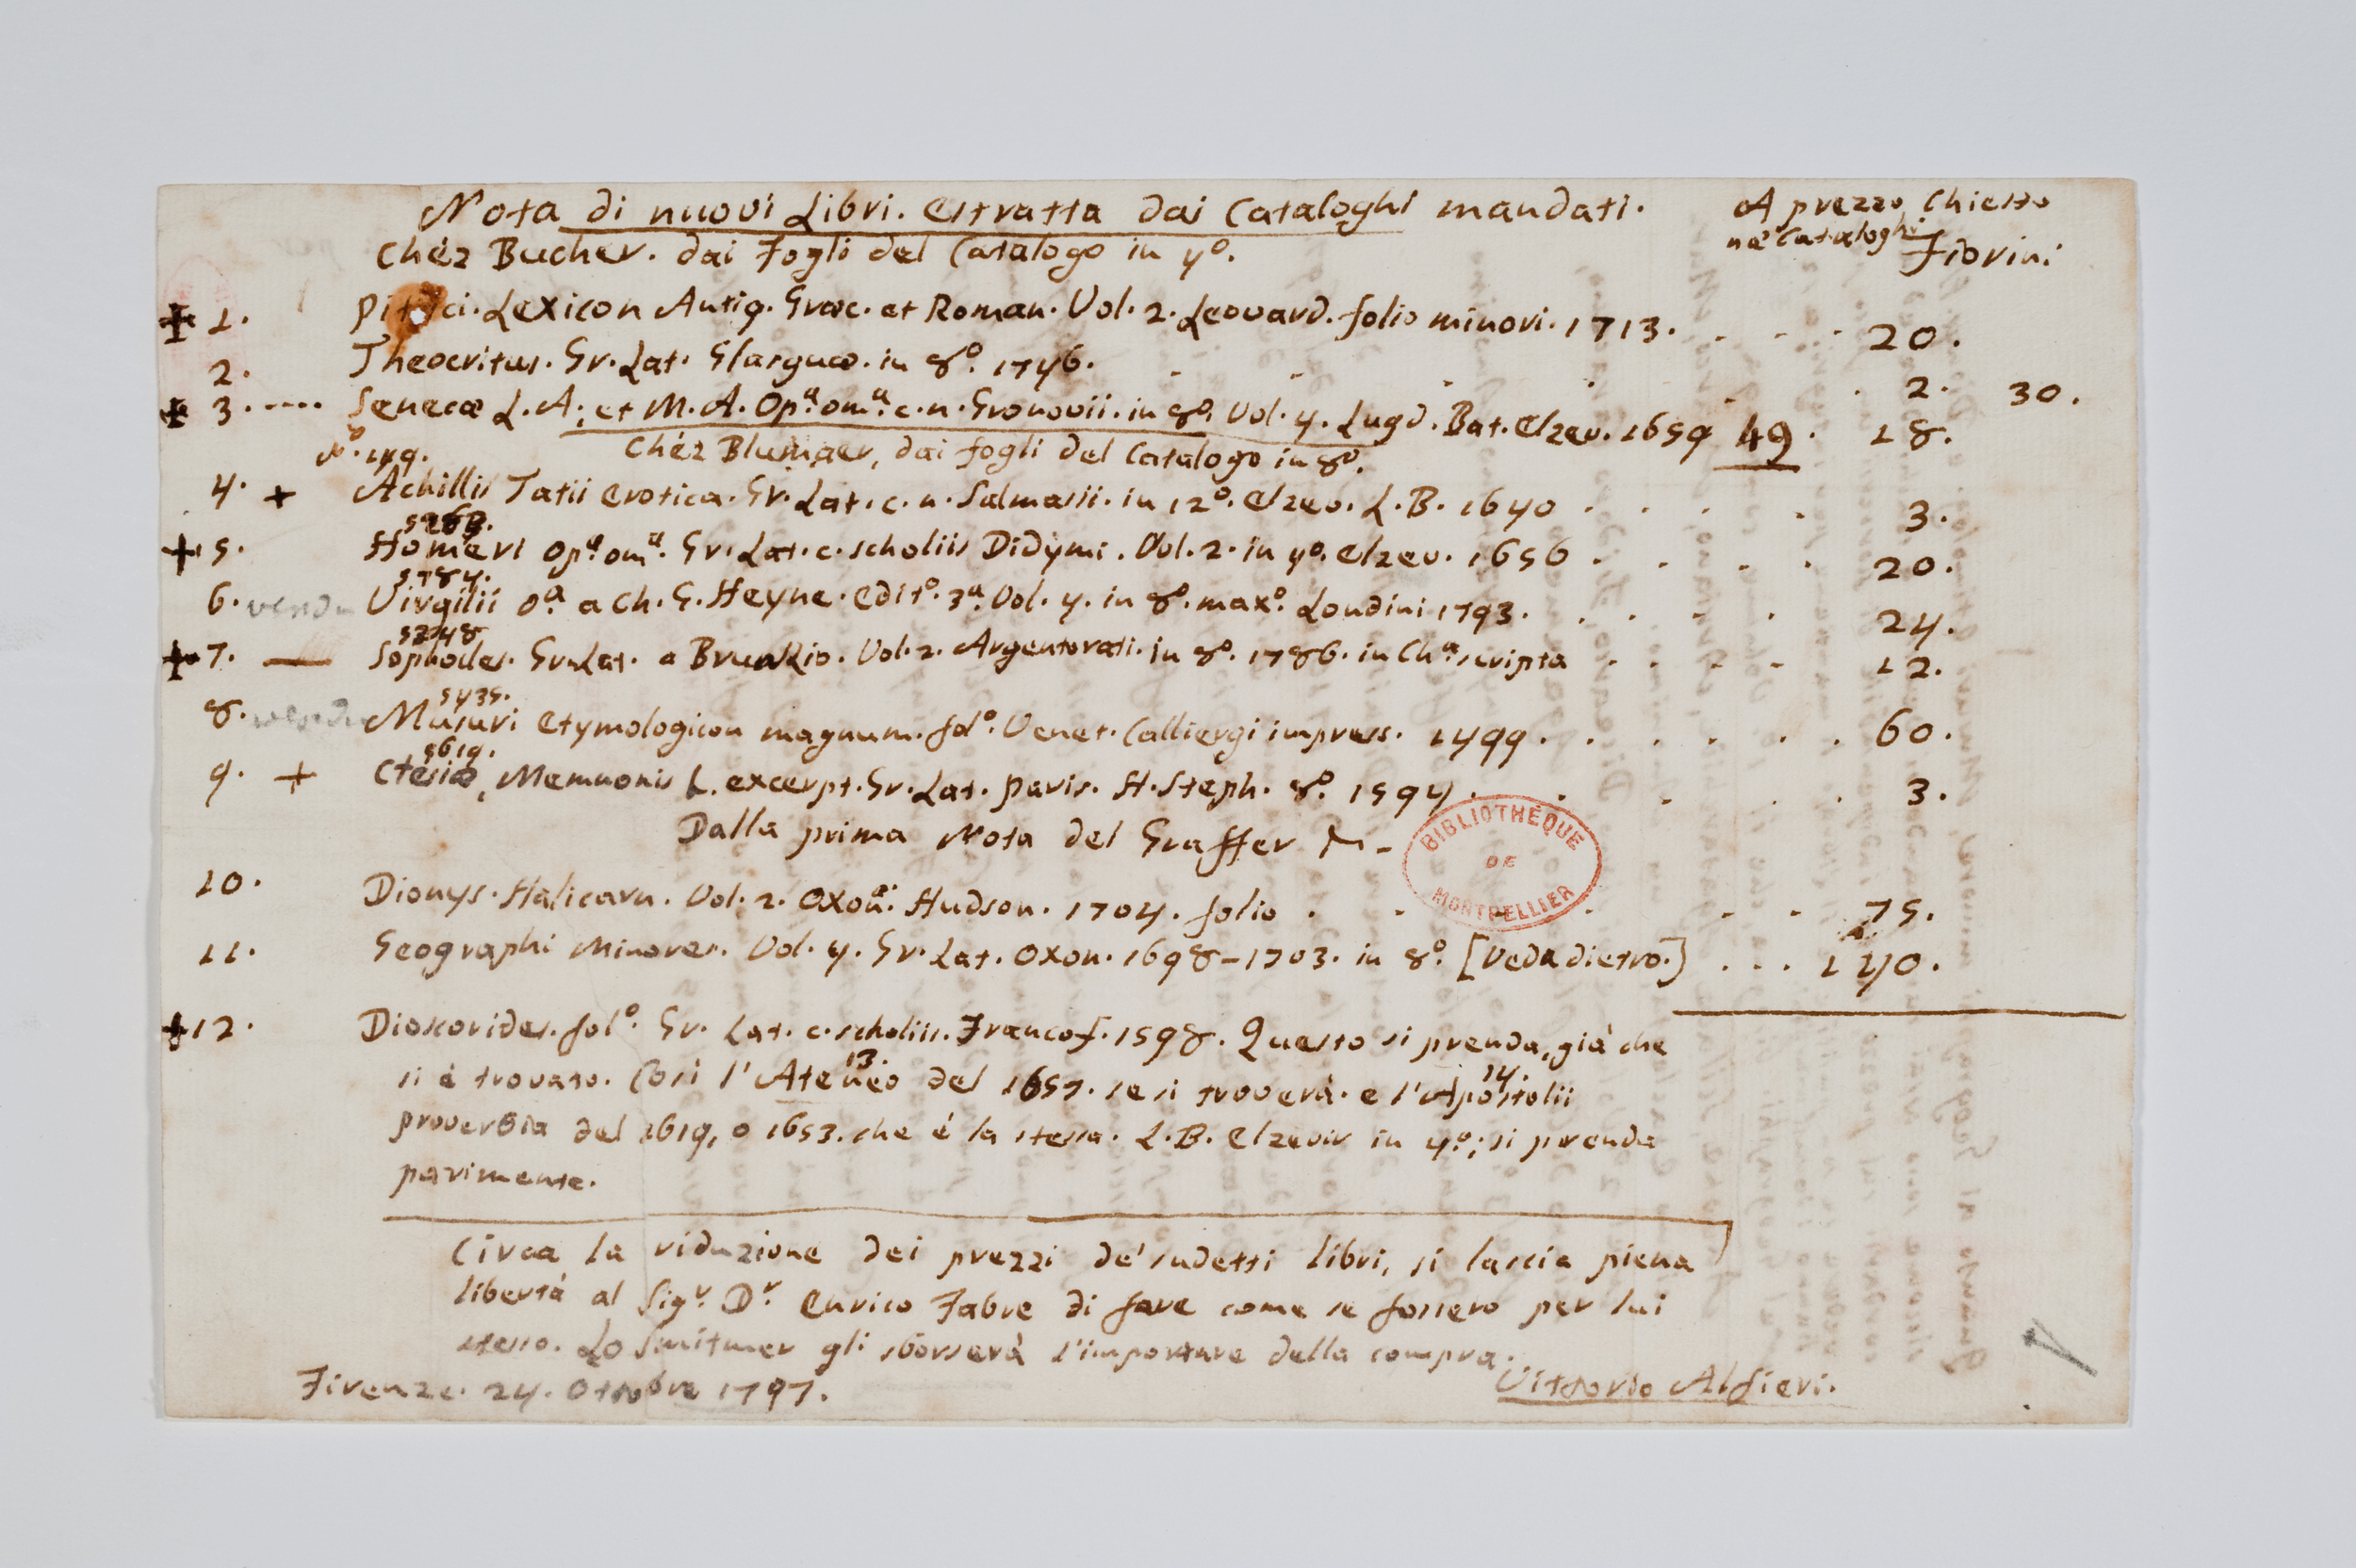 Nota di nuovi Libri. Estratta dai Cataloghi mandati. A prezzo chiesto
ne' Cataloghi. Fiorini
Chéz Bucher. dai Fogli del Catalogo in 4º.
1. Pitisci. Lexicon Antiq. Graec. et Roman. Vol. 2. Leovard. folio minori. 1713. . . . 20.
2. Theocritus. Gr. Lat. Glasguæ. in 8º. 1746. . . . . . 2. 30.
3. .... Senecæ L. A. et M. A. Opª. omª. c. n. Gronovii. in 8º. Vol. 4. Lugd. Bat. Elzev. 1659 49. 18.
Chéz Blumaer, dai fogli del Catalogo in 8º.
Nº. 149.
4. + Achillis Tatii Erotica. Gr. Lat. c. n. Salmasii. in 12º. Elzev. L. B. 1640 . . . . 3.
+ 5. Homeri Opª. omª. Gr. Lat. c. scholiis Didymi. Vol. 2. in 4º. Elzev. 1656 . . . . 20.
5784.
6. vendu Virgilii Oª. a Ch. G. Heyne. Edit°. 3ª. Vol. 4. in 8º. maxº. Londini 1793. . . . . 24.
5248
+ 7. — Sophocles. Gr. Lat. a Brunkio. Vol. 2. Argentorati. in 8º. 1786. in Chª. scripta . . . . 12.
5435.
8. vendu Musuri Etymologicon magnum. folº. Venet. Calliergi impress. 1499. . . . . . 60.
5619.
9. + Ctesiæ, Memnonis &. excerpt. Gr. Lat. Paris. H. Steph. 8º. 1594. . . . . 3.
Dalla prima Nota del Graffer
10. Dionys. Halicarn. Vol. 2. Oxon. Hudson. 1704. folio . . . . . . 75.
11. Geographi Minores. Vol. 4. Gr. Lat. Oxon. 1698-1703. in 8º. [Veda dietro.] . . . 140.
+ 12. Dioscorides. folº. Gr. Lat. c. scholiis. Francof. 1598. Questo si prenda, già che
13. 14.
si è trovato. Così l'Ateneo del 1657. se si troverà. e l'Apostolii
proverbia del 1619, o 1653. che è la stessa. L. B. Elzevir in 4º.; si prenda
parimente.
Circa la riduzione dei prezzi de' sudetti libri, si lascia piena
libertà al Sigr. Dr. Enrico Fabre di fare come se fossero per lui
stesso. Lo Smitmer gli sborserà l'importare della compra.
Firenze. 24. Ottobre 1797. Vittorio Alfieri.
BIBLIOTHÈQUE
DE
MONTPELLIER